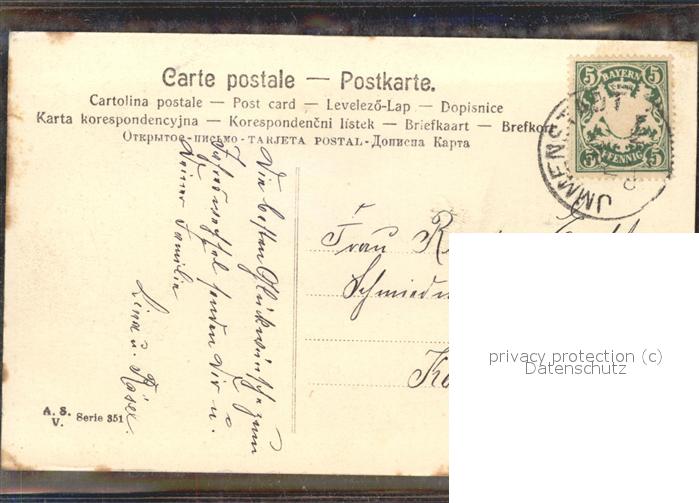 Carte postale — Postkarte.
Cartolina postale — Post card — Levelező-Lap — Dopisnice
Karta korespondencyjna — Korespondenčni lístek — Briefkaart — Brefkort
Открытое-письмо-TARJETA POSTAL-Дописна Карта
5 BAYERN 5
5 PFENNIG 5
IMMENSTADT
Die besten Glückwünsche zum
Jahreswechsel senden Dir u.
Deiner Familie
Lina u.
Frau
A. S. V. Serie 351
privacy protection (c)
Datenschutz